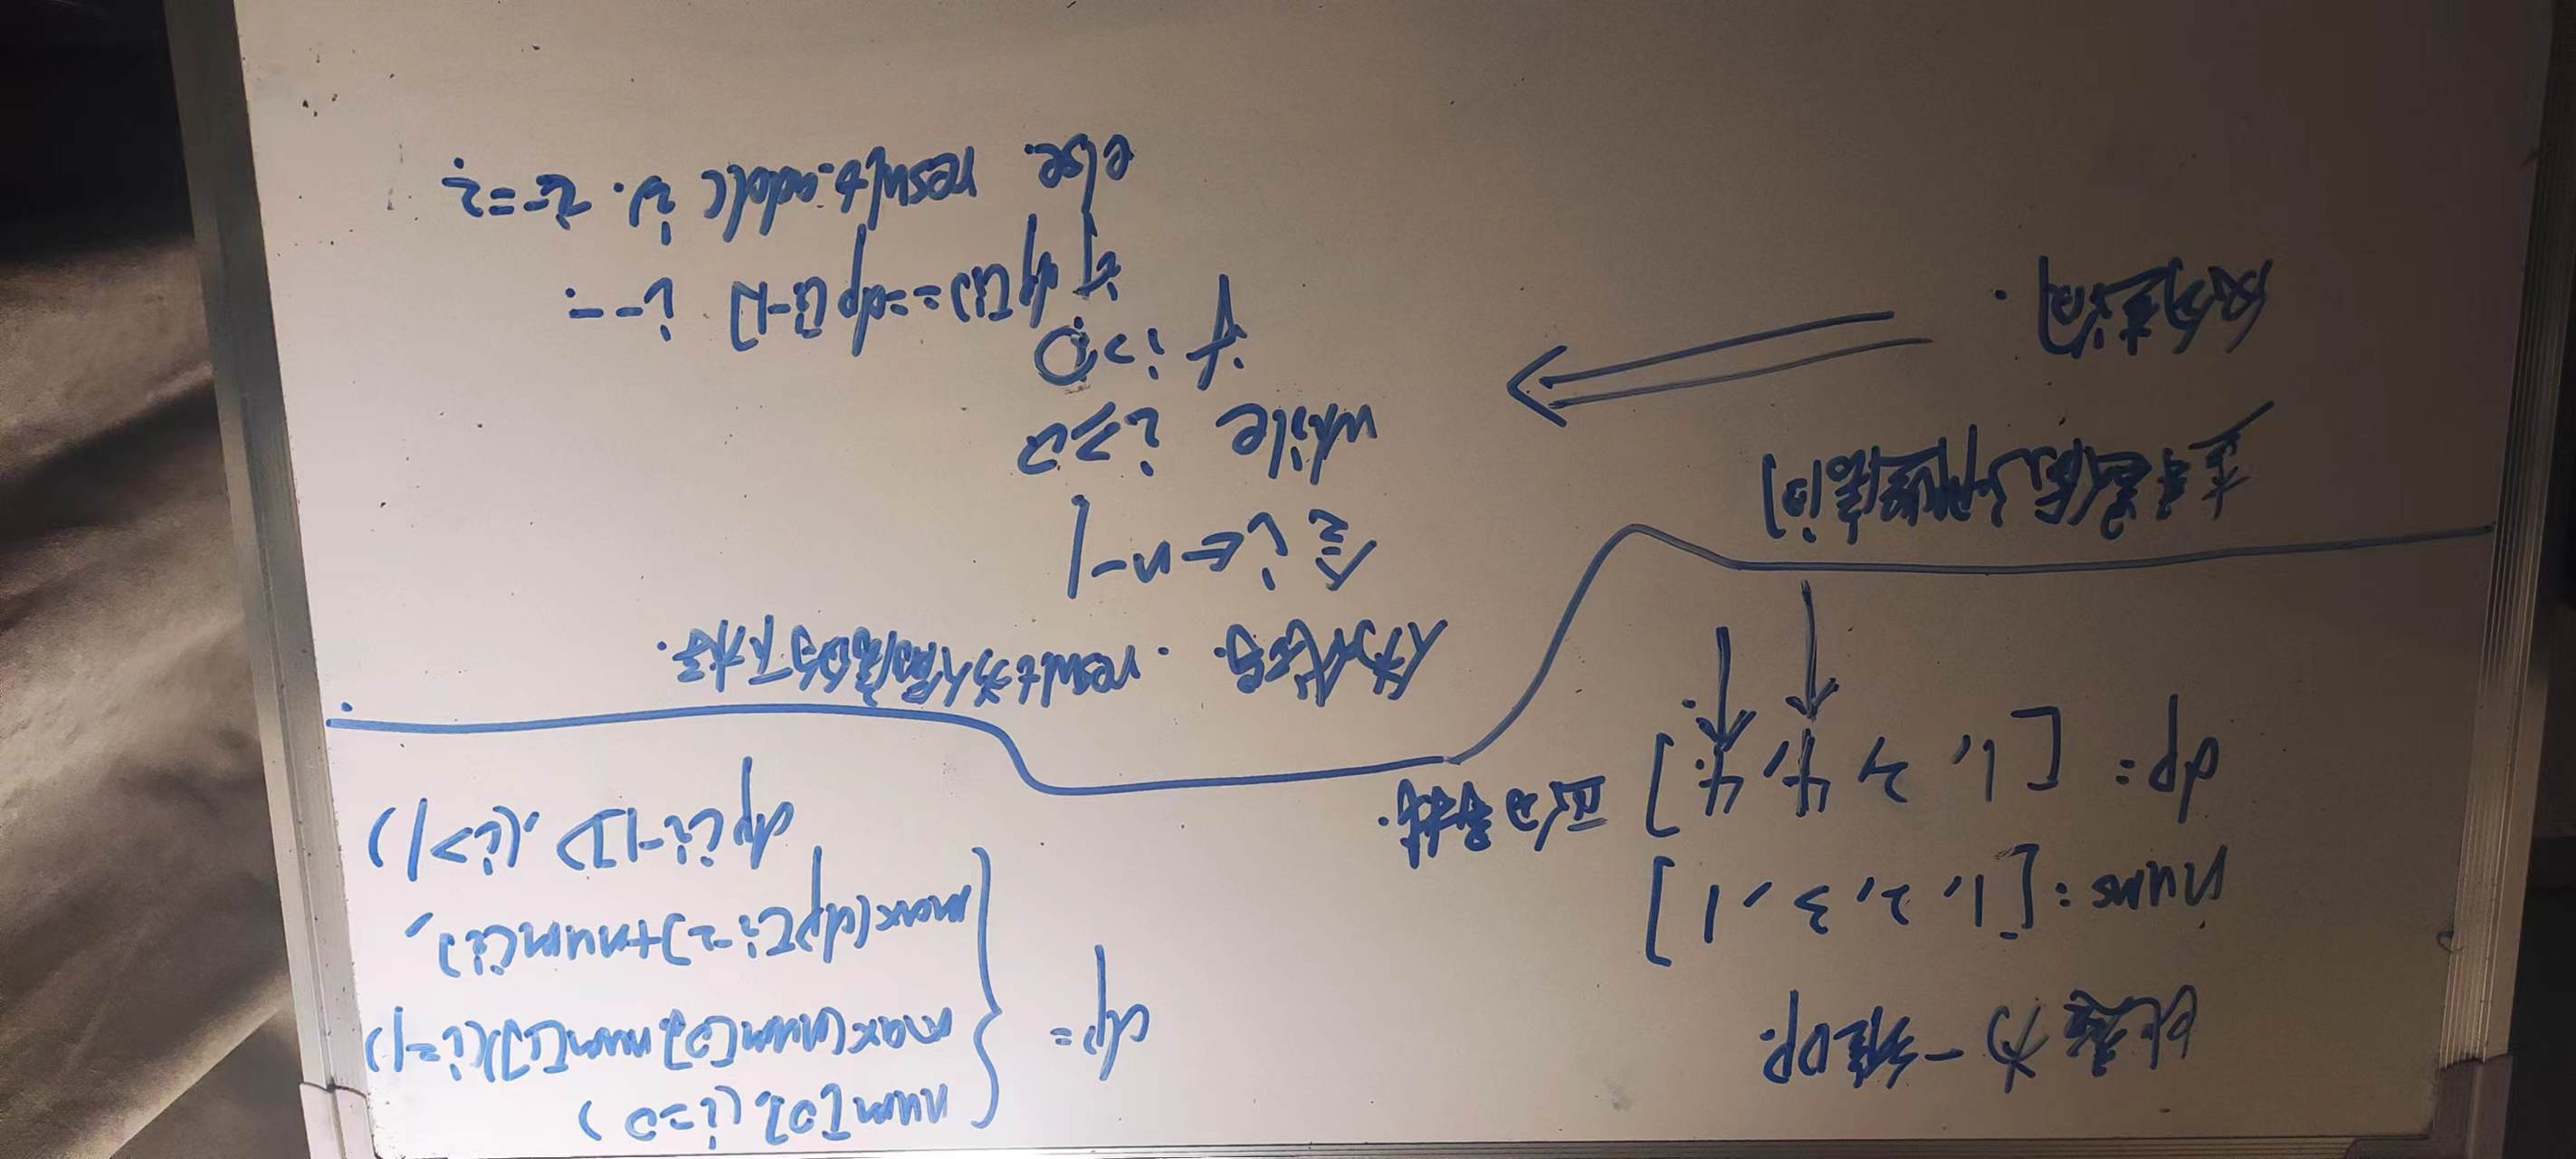 此题为一维DP.
nums:[1, 2, 3, 1]
dp= [1, 2, 4, 4.] 正向寻找.
dp=
num[0],(i=0)
max(num[0],num[1])(i=1)
max(dp[i-2]+num[i],
dp[i-1]),(i>1)
查寻是偷了哪些房间
反向查询.
伪代码. .result为偷窃的下标.
令i←n-1
while i≥0
if i>0
if dp[i]==dp[i-1] i--.
else. result.add(i). i-=2.